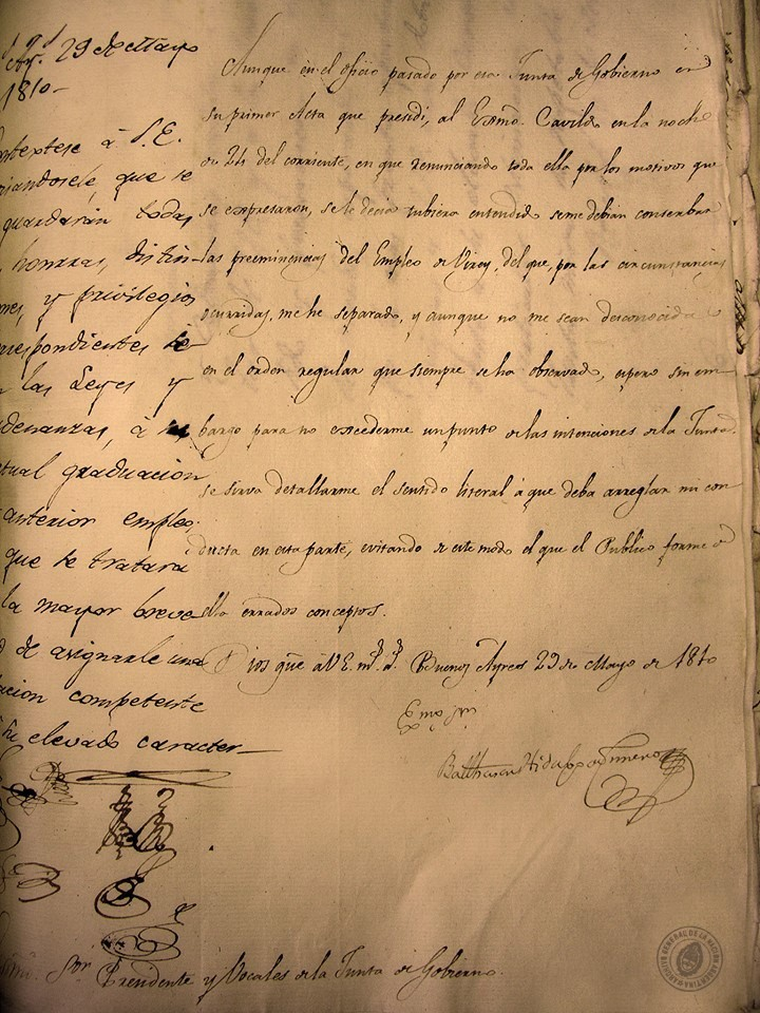 29 de Mayo
1810-
ntextese à S.E.
iandosele, que se
guardarán todas
honrras, distin-
nes, y privilegios
rrespondientes se-
n las Leyes y
denanzas, à su
ctual graduacion
anterior empleo.
que se tratara
la mayor breve
d de asignarle una
acion competente
su elevado caracter—
Aunque en el oficio pasado por esa Junta de Gobierno en
su primer Acta que presidi, al Exmo. Cavildo en la noche
de 24 del corriente, en que renunciando toda ella por los motivos que
se expresaron, se le decia tubiera entendido seme debian conserbar
las preeminencias del Empleo de Virey, del que, por las circunstancias
ocurridas, me he separado, y aunque no me sean desconocidas
en el orden regular que siempre se ha observado, espero sin em
bargo para no excederme un punto de las intenciones de la Junta
se sirva detallarme el sentido literal á que deba arreglar mi con
ducta en esta parte, evitando de este modo el que el Publico forme de
ella errados conceptos.
Dios gũe à V.E. m.s a.s Buenos Ayres 29 de Mayo de 1810
Exmo Sor
Balthasar Hidalgo de Cisneros
Sres. Presidente y Vocales de la Junta de Gobierno.
ARCHIVO GENERAL DE LA NACION ARGENTINA